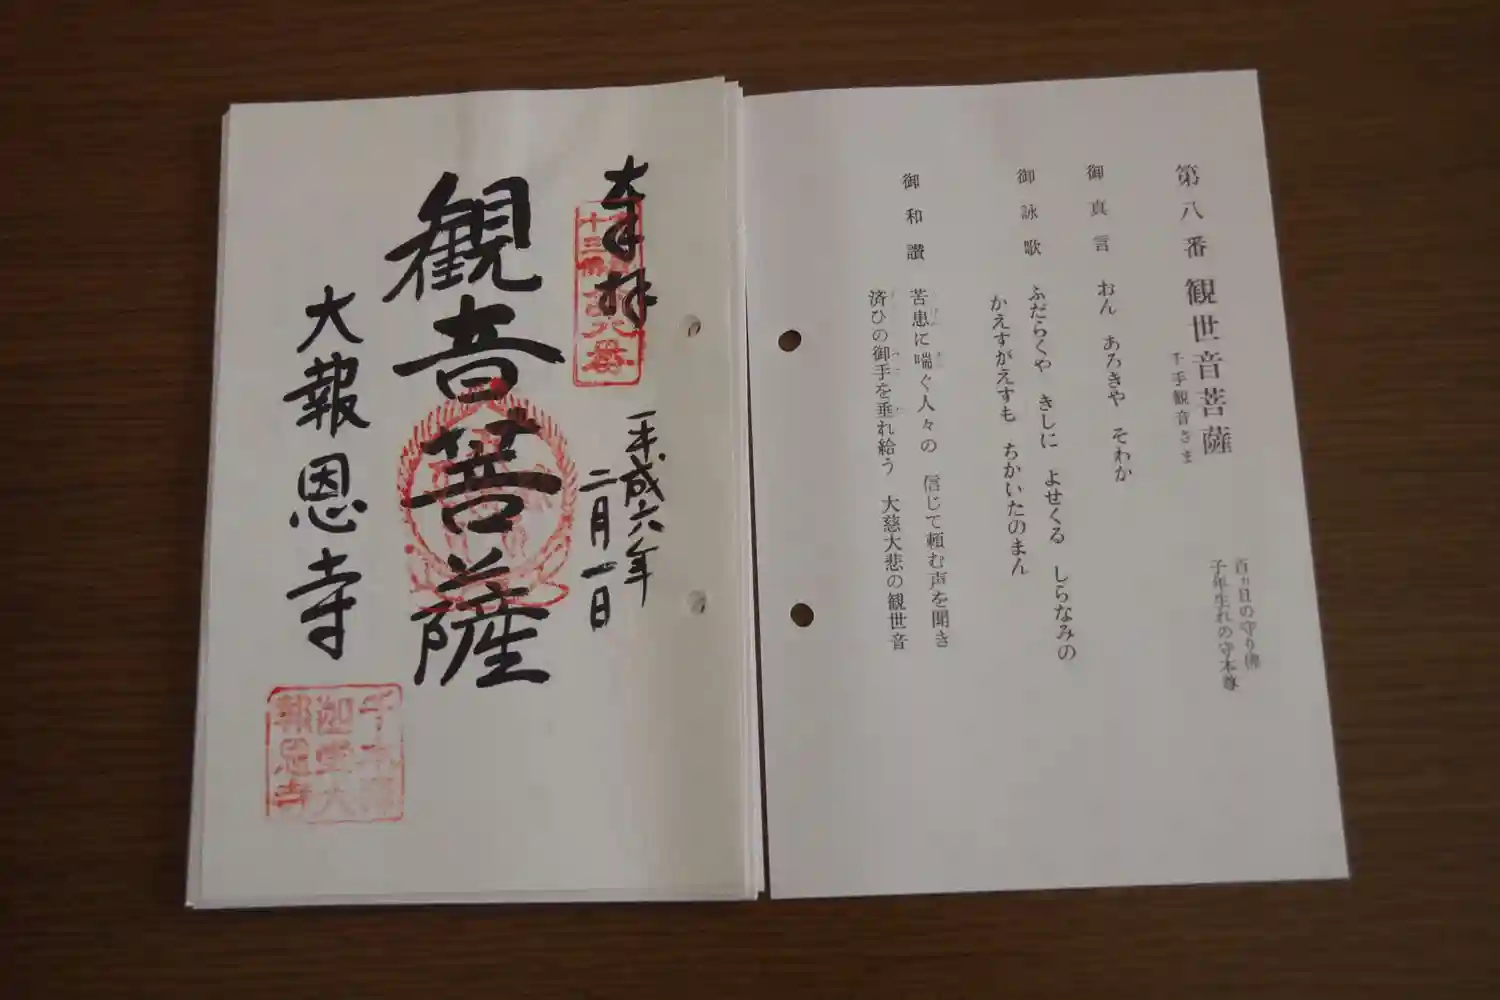 第八番 観世音菩薩
千手観音さま
百ヶ日の守り佛
子年生れの守本尊
御真言 おん あろきや そわか
御詠歌 ふだらくや きしに よせくる しらなみの
かえすがえすも ちかいたのまん
御和讃 苦患に喘ぐ人々の 信じて頼む声を聞き
済ひの御手を垂れ給う 大慈大悲の観世音
奉拝
平成六年
二月一日
観音菩薩
大報恩寺
十三佛
第八番
大
報恩寺